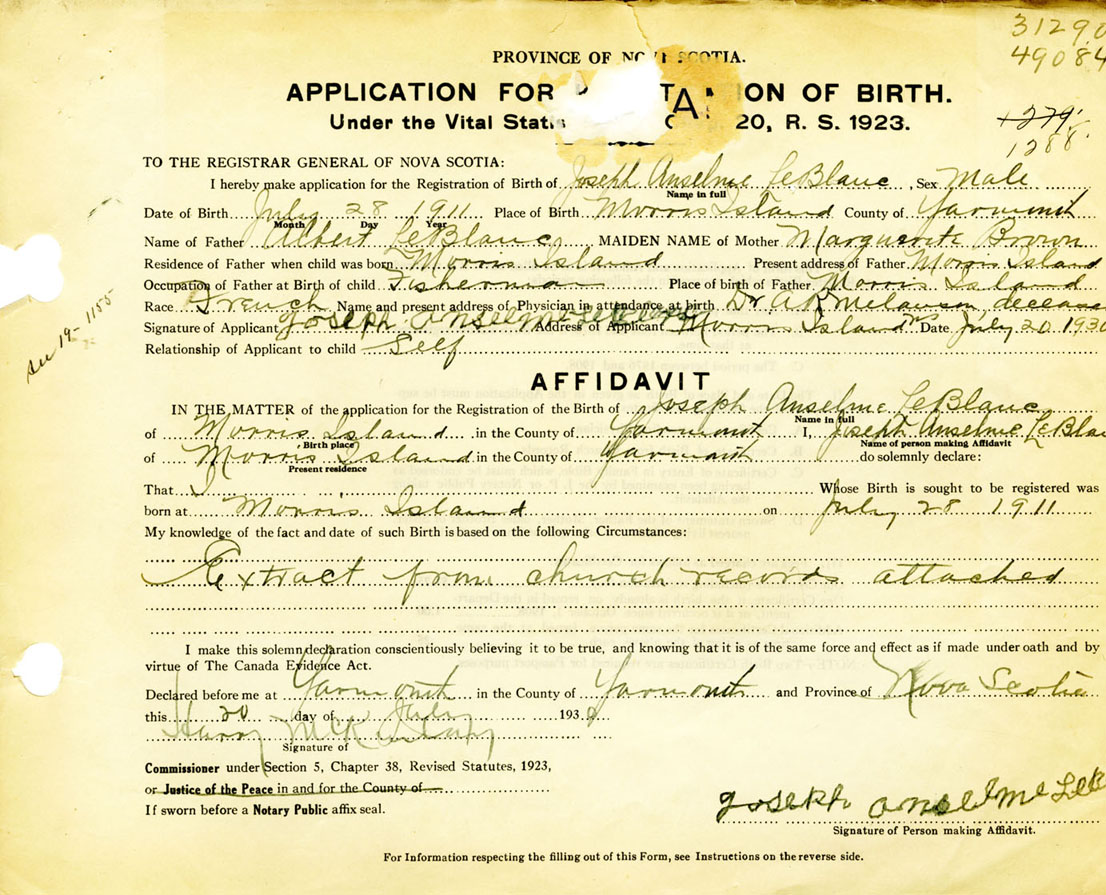 31290
49084
PROVINCE OF NOVA SCOTIA.
APPLICATION FOR TRATION OF BIRTH.
Under the Vital Statis 20, R. S. 1923.
1279
1288
TO THE REGISTRAR GENERAL OF NOVA SCOTIA:
I hereby make application for the Registration of Birth of Joseph Anselme LeBlanc, Sex Male
Name in full
Date of Birth July 28 1911 Place of Birth Morris Island County of Yarmouth
Month Day Year
Name of Father Albert LeBlanc, MAIDEN NAME of Mother Marguerite Brown
Residence of Father when child was born Morris Island Present address of Father Morris Island
Occupation of Father at Birth of child Fisherman Place of birth of Father Morris Island
Race French Name and present address of Physician in attendance at birth Dr A R Melanson, deceas
Signature of Applicant Joseph Anselme LeBlanc Address of Applicant Morris Island Date July 20 1930
Relationship of Applicant to child Self
AFFIDAVIT
IN THE MATTER of the application for the Registration of the Birth of Joseph Anselme LeBlanc
Name in full
of Morris Island in the County of Yarmouth I, Joseph Anselme LeBlan
Birth place Name of person making Affidavit
of Morris Island in the County of Yarmouth do solemnly declare:
Present residence
That I Whose Birth is sought to be registered was
born at Morris Island on July 28 1911
My knowledge of the fact and date of such Birth is based on the following Circumstances:
Extract from church records attached
I make this solemn declaration conscientiously believing it to be true, and knowing that it is of the same force and effect as if made under oath and by
virtue of The Canada Evidence Act.
Declared before me at Yarmouth in the County of Yarmouth and Province of Nova Scotia
this 20 day of July 1930
Harry
Signature of
Commissioner under Section 5, Chapter 38, Revised Statutes, 1923,
or Justice of the Peace in and for the County of
If sworn before a Notary Public affix seal.
Joseph Anselme LeB
Signature of Person making Affidavit.
For Information respecting the filling out of this Form, see Instructions on the reverse side.